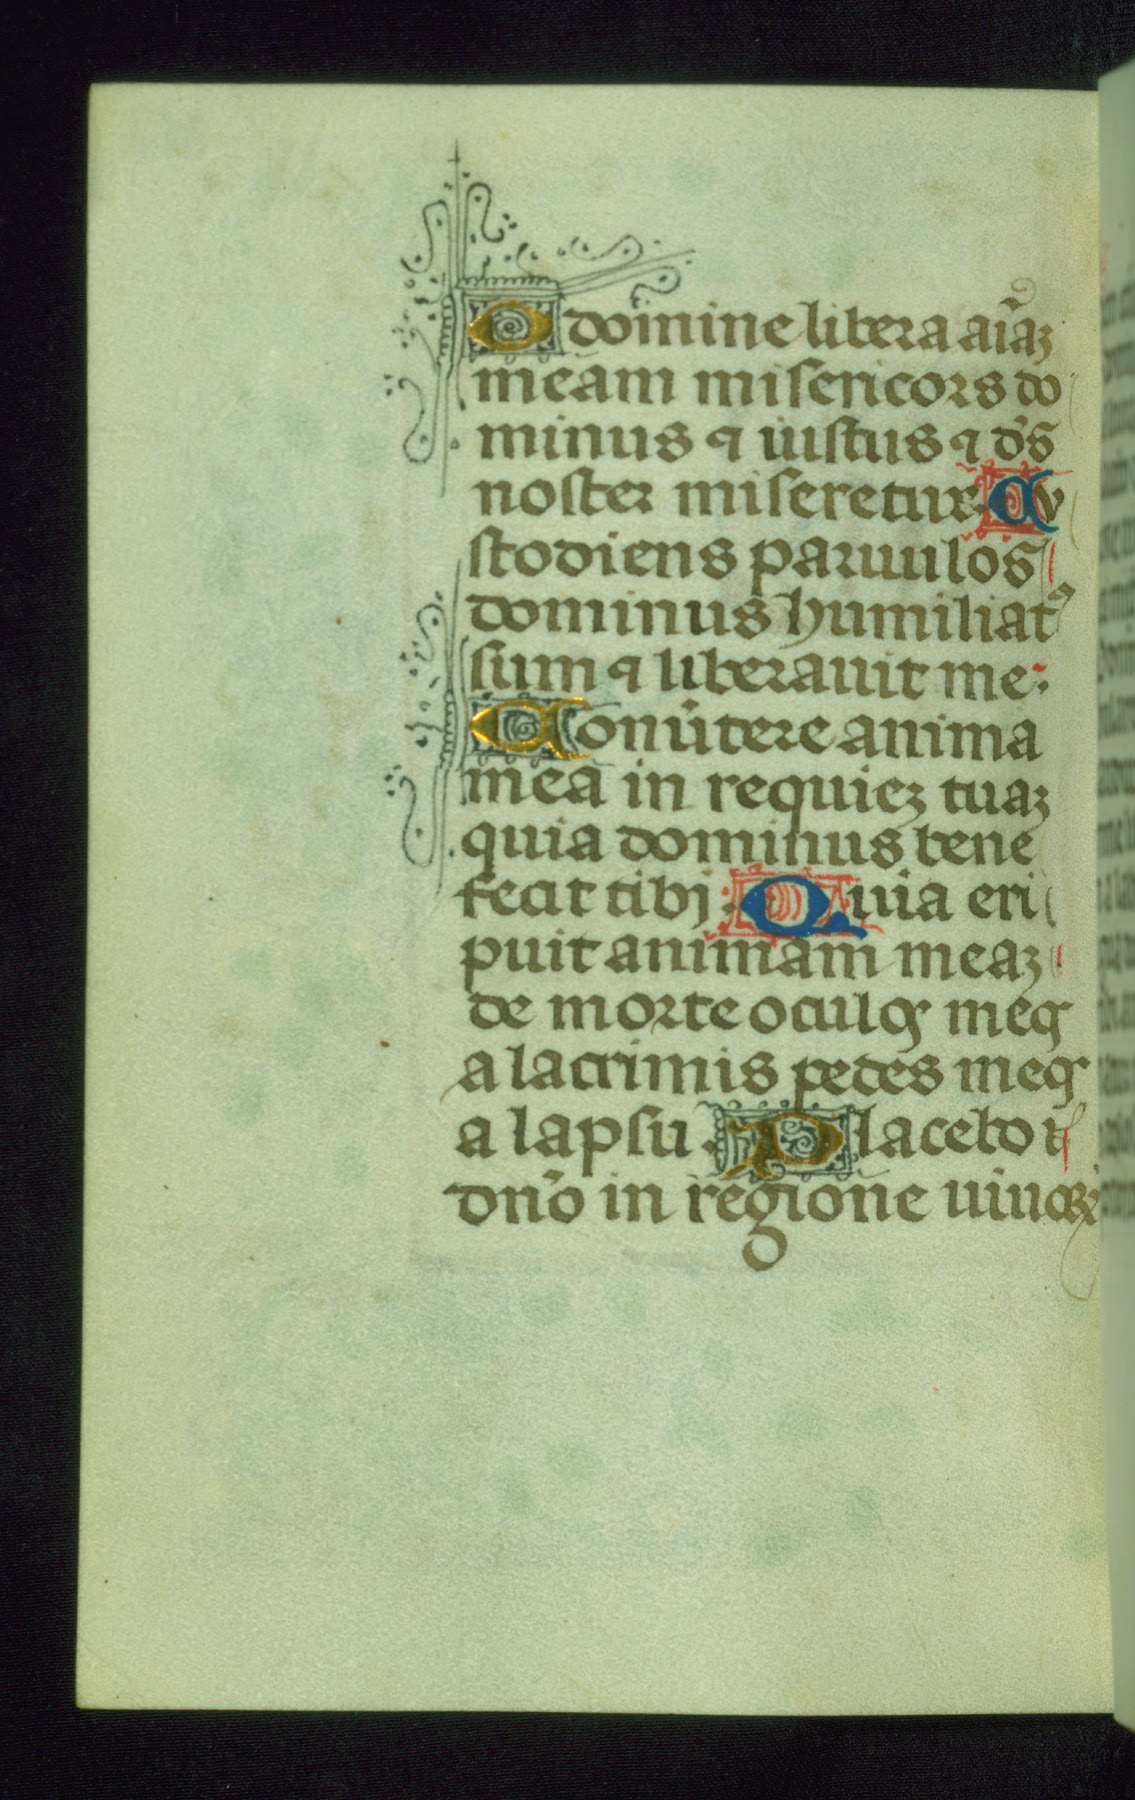 O domine libera aīaꝫ
meam misericors do
minus ⁊ iustus ⁊ ds̄
noster miseretur. Cu
stodiens paruulos
dominus humiliatꝰ
sum ⁊ liberauit me:
Conūtere anima
mea in requieꝫ tuaꝫ
quia dominus bene
fecit tibi. Quia eri
puit animam meaꝫ
de morte oculoꝭ meoꝭ
a lacrimis pedes meoꝭ
a lapsu. Placebo i
dn̄o in regione uiuoꝝ